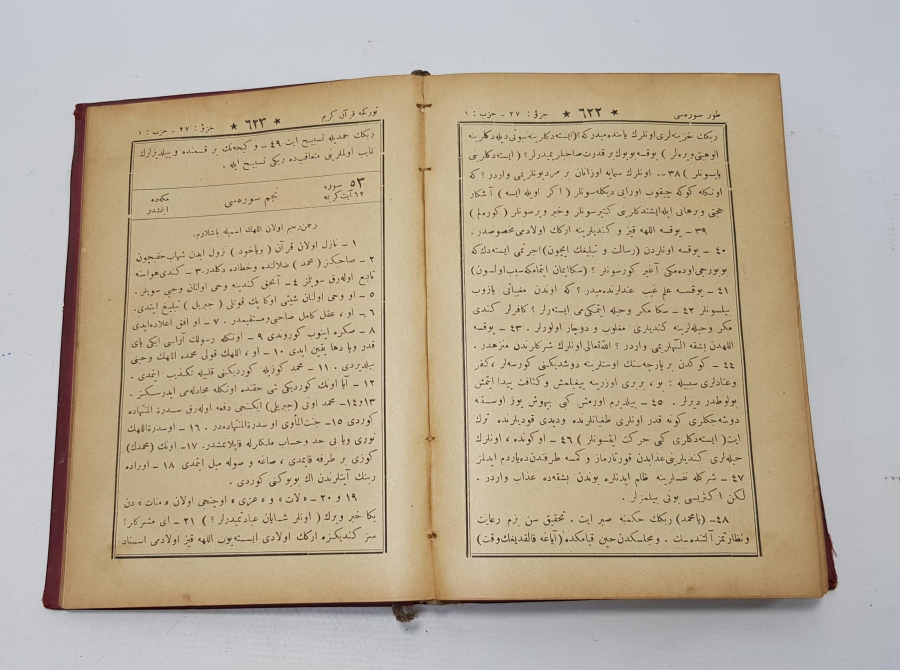 طور سوره‌سی ★ ٦٢٢ ★ جزؤ : ٢٧ - حزب : ١
ربكك خزینه‌لری اونلرك یاننده‌میدركه؟(ایسته‌دكلرینه نبوتی دیله‌دكلرینه
الوهیتی ویره‌لر ) یوقسه بویوك بر قدرت صاحبلریمیدرلر؟ ( ایسته‌دكلرینی
یاپسونلر ) ٣٨... اونلرك سمایه اوزانان بر مردیونلریمی واردر؟ كه
اونكله كوكه چیقوب اورایی دیكله‌سونلر ( اكر اویله ایسه ) آشكار
حجتی وبرهانی ایله‌ایشتدكلرینی كتیرسونلر وخبر ویرسونلر (كوره‌لم )
٣٩ ـ یوقسه اللهه قیز و كندیلرینه اركك اولادمی مخصوصدر .
٤٠ ـ یوقسه اونلردن (رسالت و تبلیغك ایچون) اجرتمی ایسته‌دك‌كه
بوبورجی‌اوده‌مكی آغیر كورسونلر ؟ (سكاایمان ایتمامكه‌سبب‌اولسون)
٤١ ـ یوقسه علم غیب عندلرنده‌میدر؟ كه اوندن مغیباتی یازوب
بیلسونلر ٤٢ ـ سكا مكر وحیله ایتمكمی ایسته‌رلر؟ كافرلر كندی
مكر وحیله‌لرینه كندیلری مغلوب و دوچار اولورلر . ٤٣ ـ یوقسه
اللهدن بشقه الٰهلریمی واردر ؟ الله‌تعالی‌اونلرك شركلرندن منزهدر .
٤٤ ـ كوكدن بر پارچه‌سنك اوستلرینه دوشدیكنی كورسه‌لر ، كفر
وعنادلری سببیله : بو ، بربری اوزرینه ییغیلمش وكثافت پیدا ایتمش
بولوطدر دیرلر . ٤٥ ـ ییلدیرم اورمش كبی بیهوش یوز اوستنه
دوشه‌جكلری كونه قدر اونلری طغیانلرنده ودیدی قودیلرنده ترك
ایت( ایسته‌دكلری كبی حركت ایتسونلر ) ٤٦ ـ اوكونده ، اونلرك
حیله‌لری كندیلرینی‌عذابدن قورتارماز و كمسه طرفندن‌ده‌یاردم ایدلمز
٤٧ ـ شركله نفسلرینه ظلم ایدنلره بوندن بشقه‌ده عذاب واردر .
لكن اكثریسی بونی بیلمزلر .
٤٨ ـ (یامحمد) ربكك حكمنه صبر ایت . تحقیق سن بزم رعایت
ونظارتمز آلتنده‌سك . ومجلسكدن‌حین قیامكده (آیاغه قالقدیغك‌وقت)
توركجه قرآن كریم ★ ٦٢٣ ★ جزؤ : ٢٧ - حزب : ١
ربكك حمدیله تسبیح ایت ٤٩ ـ و كیجه‌نك بر قسمنده و ییلدیزلرك
غایب اولملرینی متعاقب‌ده ربكی تسبیح ایله .
٥٣ سوره
٦٢ آیت كریمه
نجم سوره‌سی
مكه‌ده
اینمشدر
رحمن رحیم اولان اللهك اسمیله باشلارم.
١ ـ نازل اولان قرآن ( ویاخود ) نزول ایدن شهاب‌حقیچون
٢ ـ صاحبكز ( محمد ) ضلالتده وخطاده دكلدر.٣ ـ كندی‌هواسنه
تابع اوله‌رق سویلمز ٤ ـ آنجق كندینه وحی اولنان وحیی سویلر.
٥ ـ او وحی اولنان شیئی اوكا پك قوتلی ( جبریل ) تبلیغ ایتدی.
٦ ـ او ، عقل كامل صاحبی‌ومستقیمدر . ٧ ـ او افق اعلاده‌ایدی
٨ ـ صكره اینوب كوروندی ٩ ـ اونكله رسولك آراسی ایكی یای
قدر ویا دها یقین ایدی ١٠ ـ او ، اللهك قولی محمده اللهك وحینی
بیلدیردی . ١١ ـ محمد كوزیله كوردیكنی قلبیله تكذیب ایتمدی .
١٢ ـ آیا اونك كوردیكی شی حقنده اونكله مجادله‌می ایدرسكز .
١٣و١٤ـ محمد اونی (جبریلی) ایكنجی دفعه اوله‌رق سدرة المنتهاده
كوردی ١٥ـ جنت‌المأوی اوسدرة‌المنتهاده‌در . ١٦ ـ اوسدرة‌اللهك
نوری ویا بی حد وحساب ملكلر ایله قاپلانمشدر. ١٧ـ اونك (محمدك)
كوزی بر طرفه قایمدی ، صاغه و صوله میل ایتمدی ١٨ ـ اوراده
ربنك آیتلرندن اك بویوكنی كوردی .
١٩ و ٢٠ ـ « لات » و « عزی » و اوچنجی اولان « منات » دن
بكا خبر ویرك ( اونلر شایان عبادتمیدرلر ؟ ) ٢١ ـ ای مشركلر!
سز كندیكزه اركك اولادی ایسته‌یوب اللهه قیز اولادمی اسناد